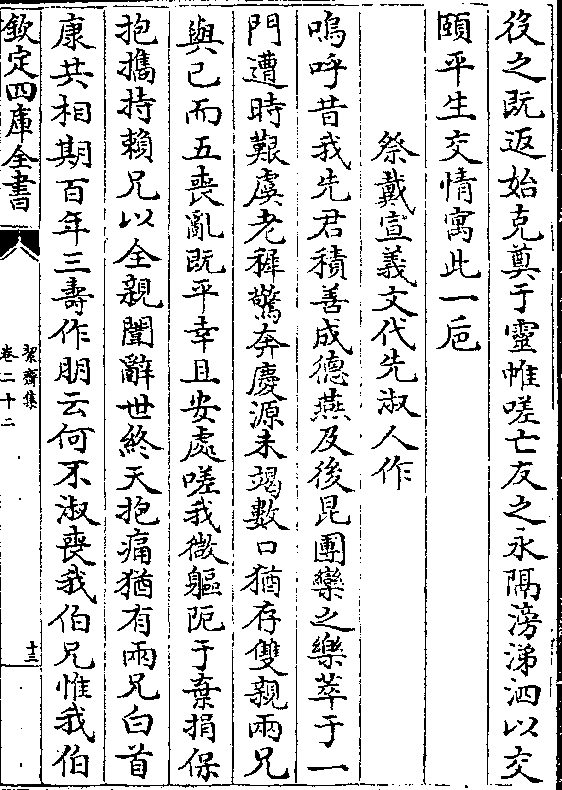 後之既返始克奠于靈帷嗟亡友之永隔滂涕泗以交
頤平生交情寓此一巵
祭戴宣義文代先淑人作
嗚呼昔我先君積善成德燕及後昆團欒之樂萃于一
門遭時艱虞老穉驚奔慶源未竭數口猶存雙親兩兄
與已而五喪亂既平幸且安處嗟我微軀阨于棄捐保
抱攜持賴兄以全親闈辭世終天抱痛猶有兩兄白首
康共相期百年三壽作朋云何不淑喪我伯兄惟我伯
欽定四庫全書
絜齋集
卷二十二
十三